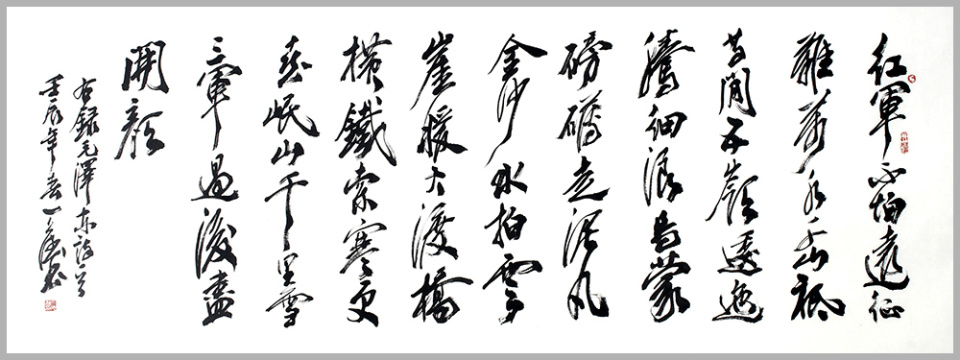 紅軍不怕遠征
難萬水千山祇
等閒五嶺逶迤
騰細浪烏蒙
磅礴走泥丸
金沙水拍雲
崖暖大渡橋
橫鐵索寒更
喜岷山千里雪
三軍過後盡
開顏
右錄毛澤东詩一首
壬辰年春一書